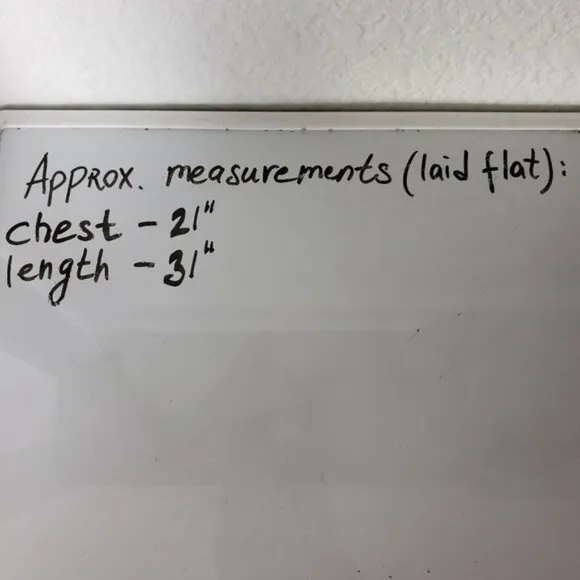 Approx. measurements (laid flat):
chest - 21"
length - 31"